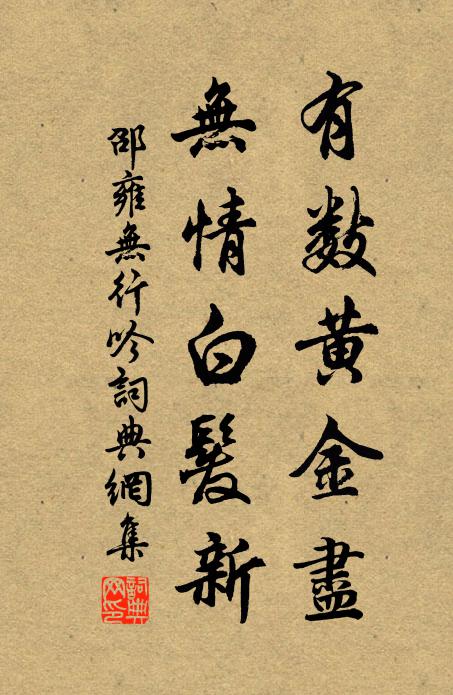 有數黃金盡
無情白髮新
邵雍無行吟詞典網集
詞典
网印